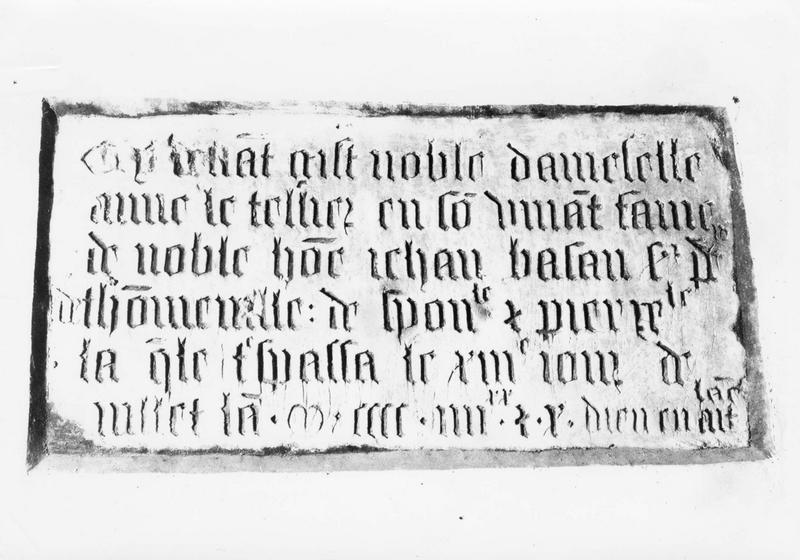 Cy devāt gist noble dameselle
anne le tellier en sō vivāt fame
de noble hōe iehan basan sr
de thōmenille : de sponle & pierre
la q̄le t'spassa le xiiie iour de
iullet lā · M · cccc · iiiixx · & · x · dieu en ait lāe